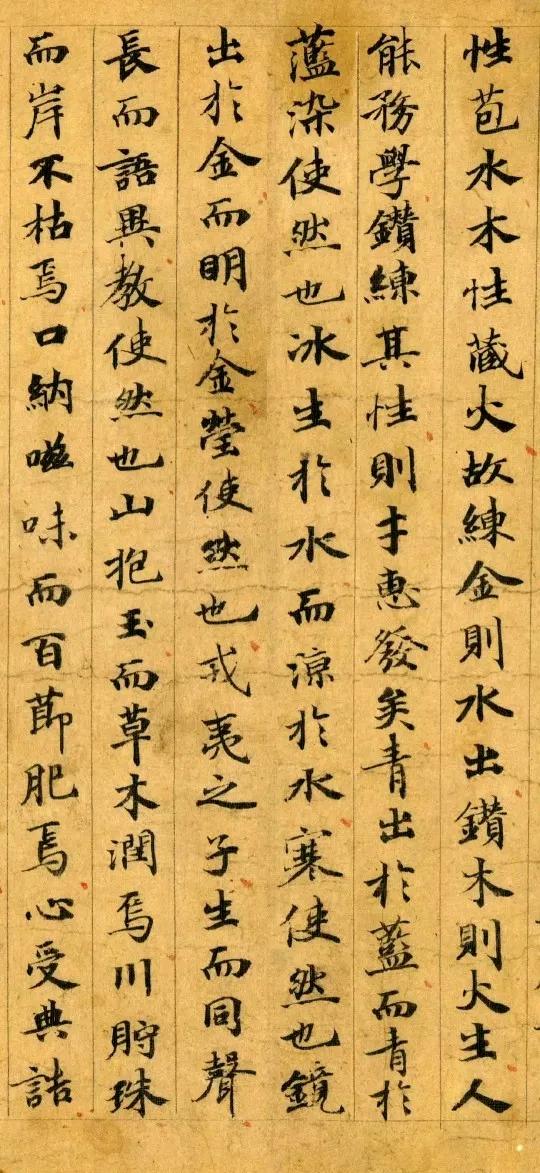 性苞水木性藏火故練金則水出鑽木則火生人
能務學鑽練其性則才惠發矣青出於藍而青於
藍染使然也冰生於水而涼於水寒使然也鏡
出於金而明於金瑩使然也戎夷之子生而同聲
長而語異教使然也山抱玉而草木潤焉川貯珠
而岸不枯焉口納滋味而百節肥焉心受典誥